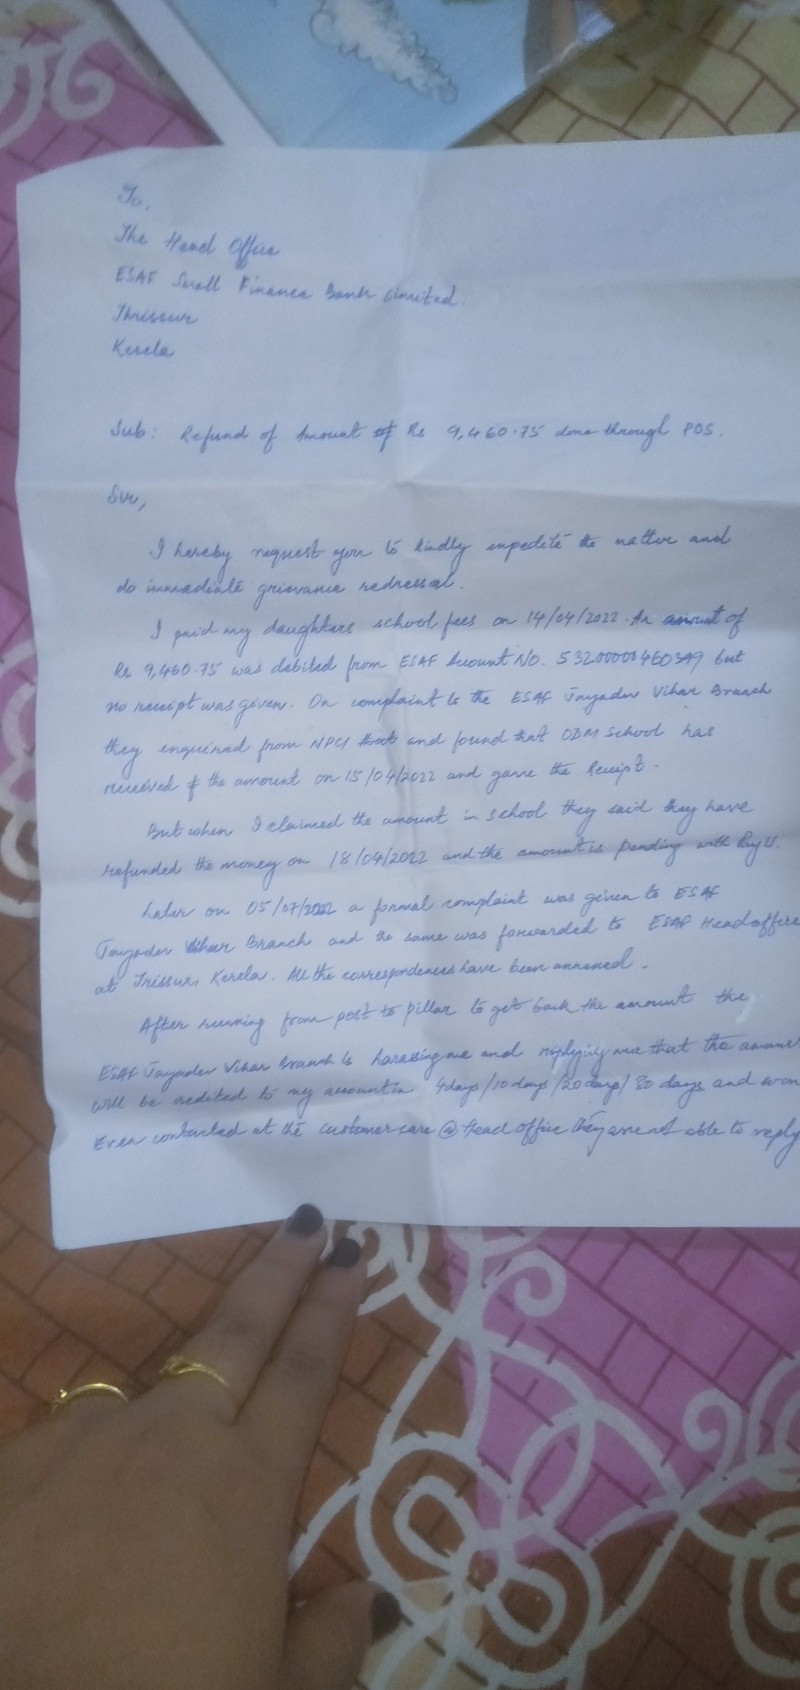 To,
The Head Office
ESAF Small Finance Bank Limited.
Thrissur
Kerela
Sub: Refund of Amount of Rs 9,460.75 done through POS.
Sir,
I hereby request you to kindly expedite the matter and
do immediate grievance redressal.
I paid my daughters school fees on 14/04/2022. An amount of
Rs 9,460.75 was debited from ESAF Account NO. but
no receipt was given. On complaint to the ESAF Jayadev Vihar Branch
they enquired from NPCI and found that ODM School has
received the amount on 15/04/2022 and gave the Receipt.
But when I claimed the amount in school they said they have
refunded the money on 18/04/2022 and the amount is pending with PayU.
Later on 05/07/2022 a formal complaint was given to ESAF
Jayadev Vihar Branch and the same was forwarded to ESAF Head office
at Trissur, Kerela. All the correspondences have been annexed.
After running from post to pillar to get back the amount the
ESAF Jayadev Vihar Branch is harassing me and replying me that the
will be credited to my account in 4days/10days/20days/30 days and
Even contacted at the customer care @ Head office They are not able to reply